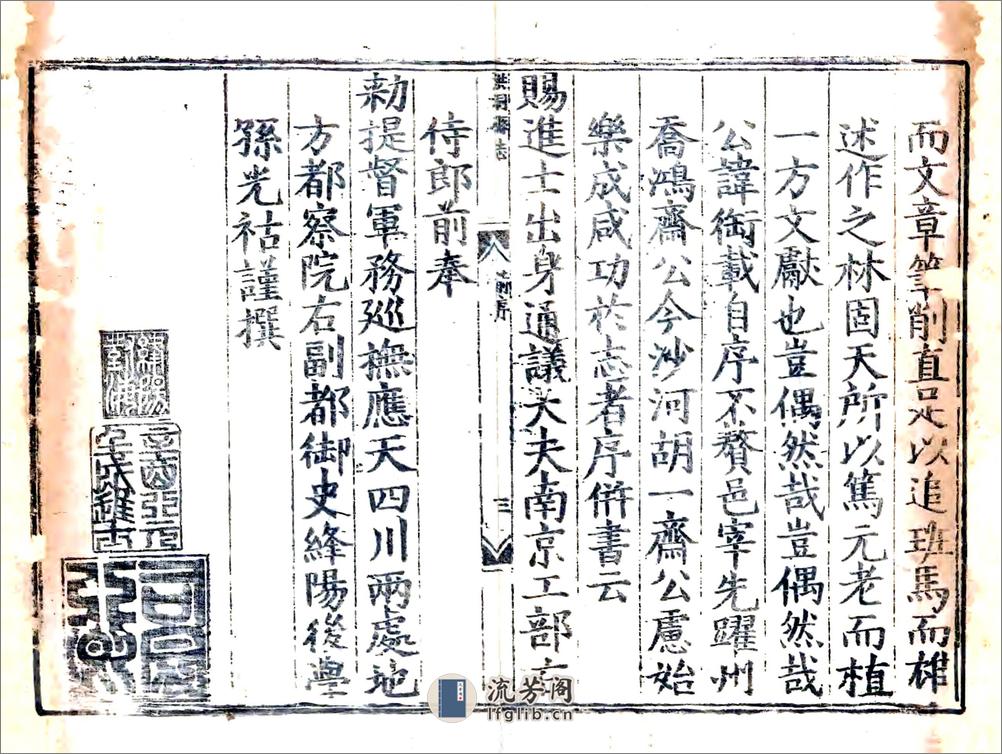 而文章筆削直足以追班馬而雄
述作之林固天所以篤元老而植
一方文獻也豈偶然哉豈偶然哉
公諱銜載自序不贅邑宰先躍州
喬鴻齋公今沙河胡一齋公慮始
樂成咸功於志者序併書云
賜進士出身通議大夫南京工部右
洪洞縣志
前序
三
侍郎前奉
勑提督軍務廵撫應天四川兩處地
方都察院右副都御史絳陽後學
孫光祜謹撰
流芳阁
lfglib.cn